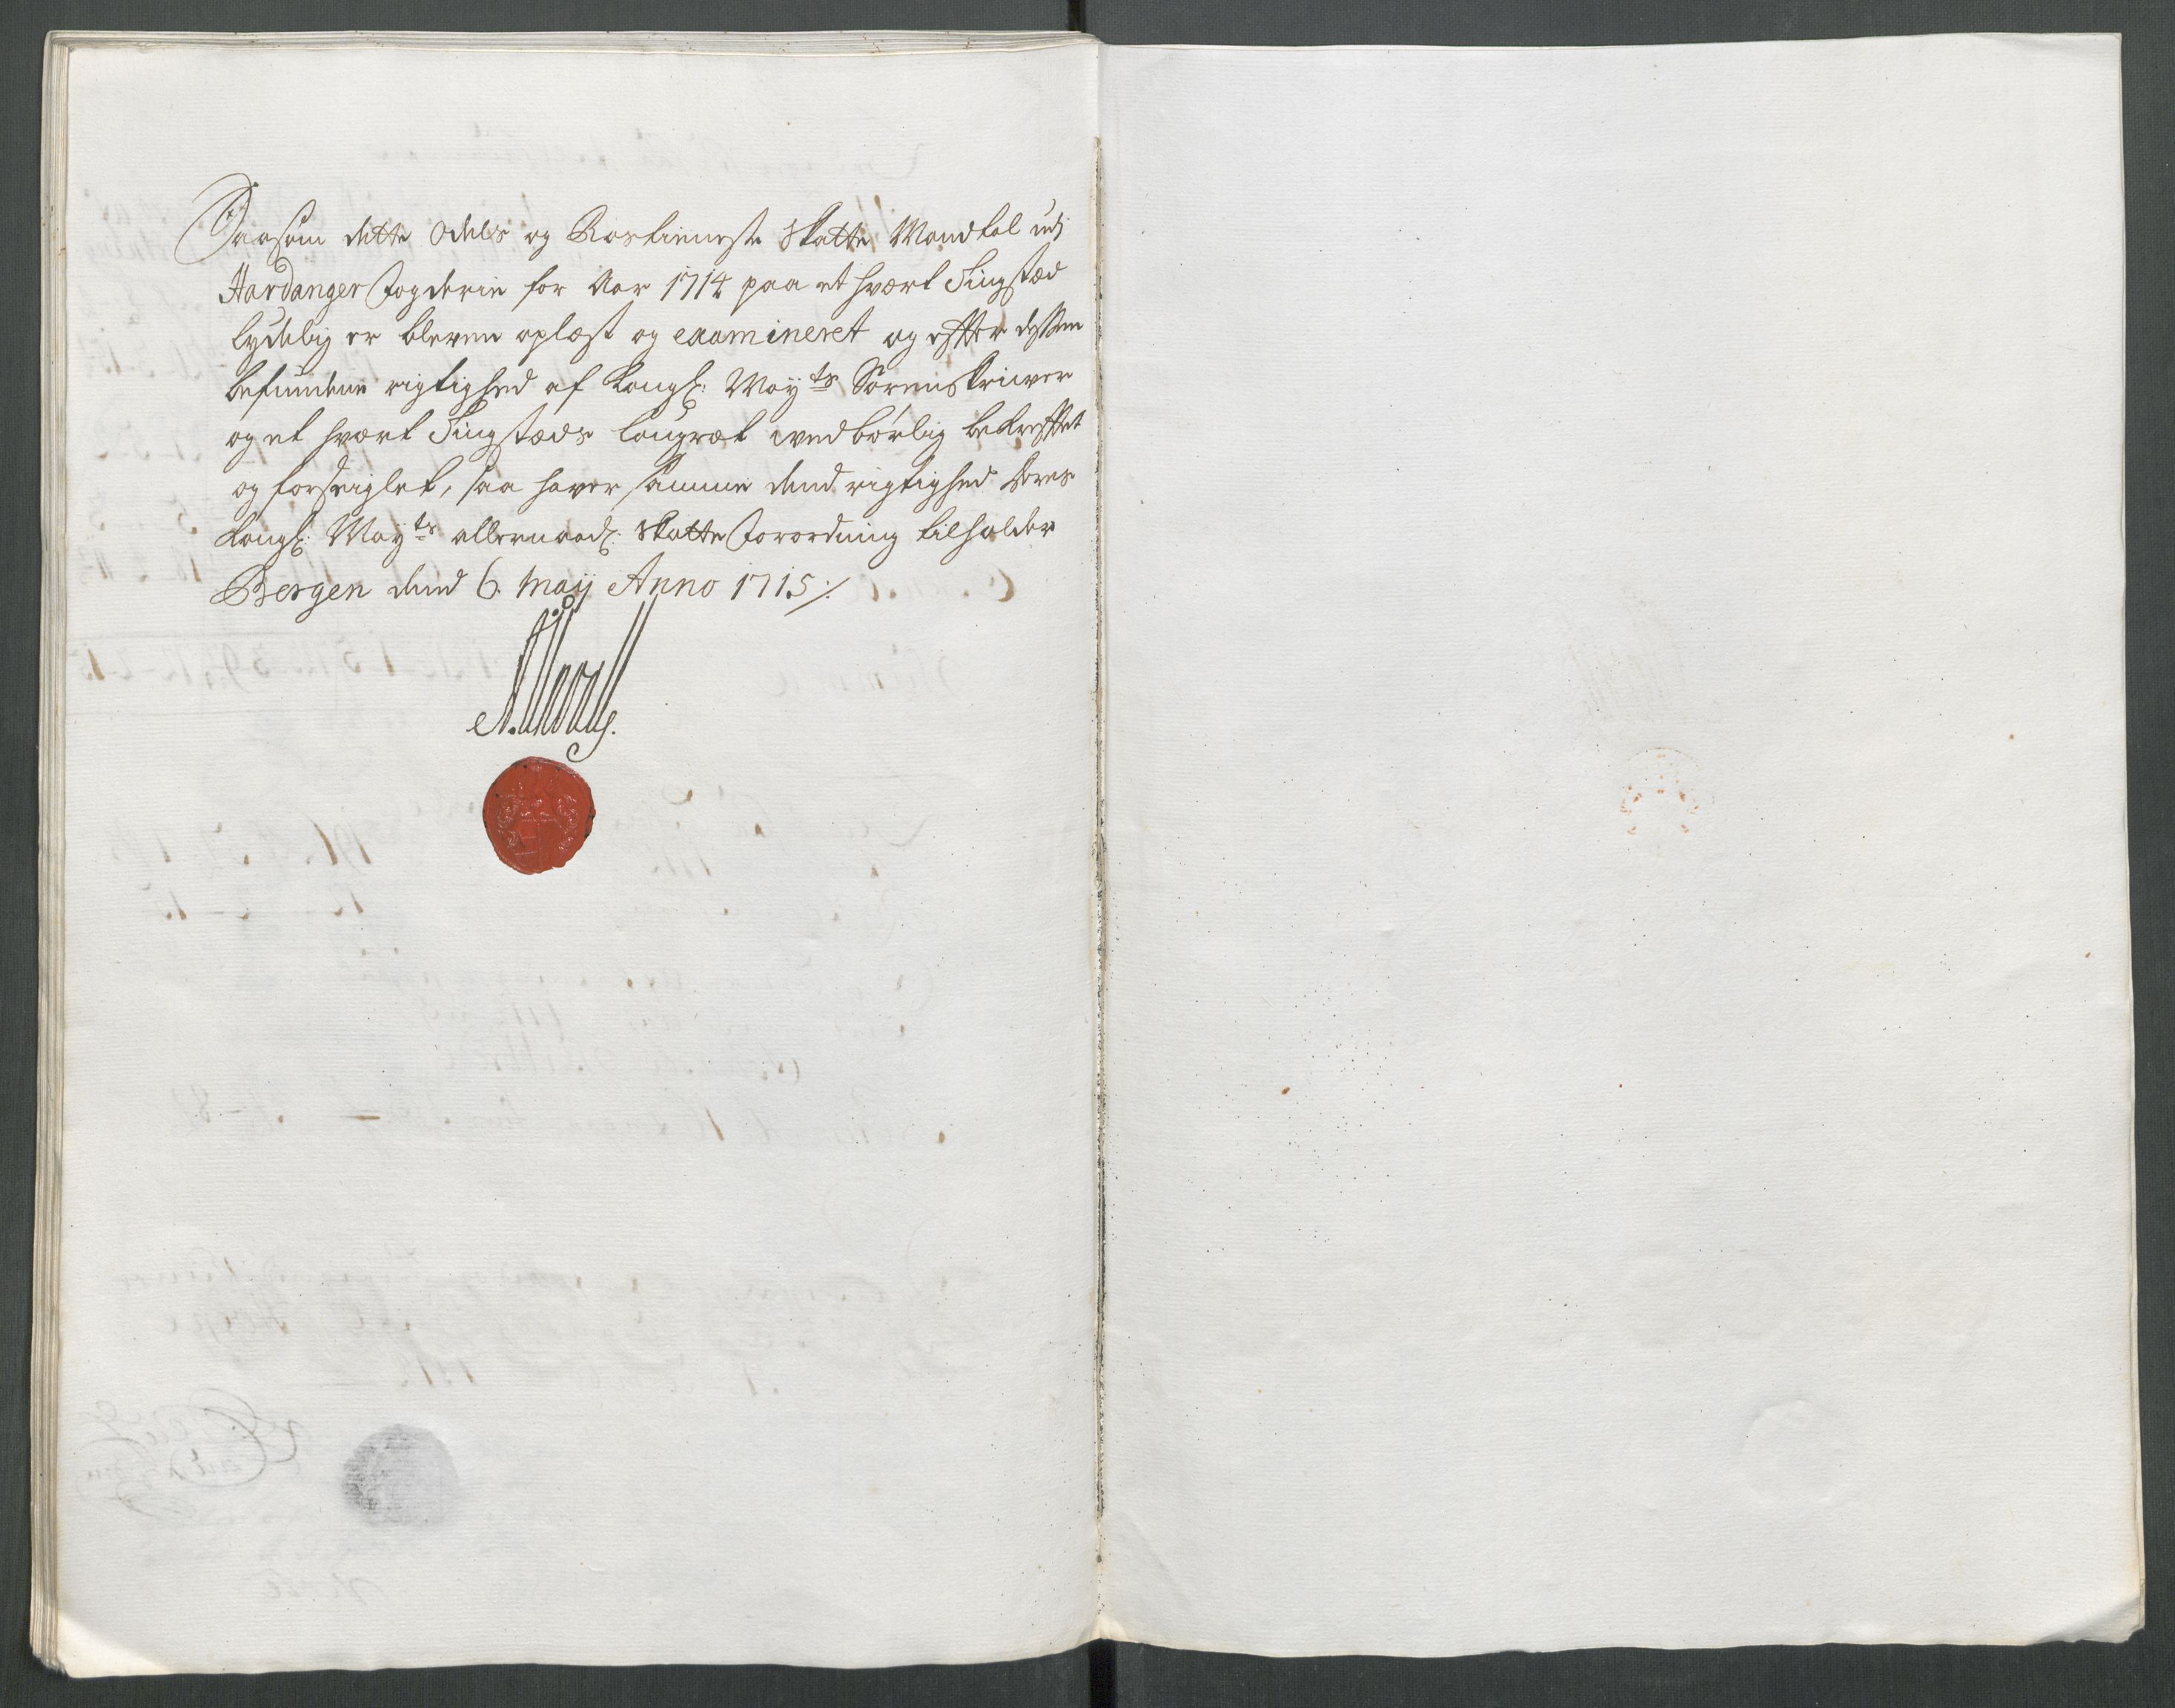 Saasom dette Odels og Rostieneste Skatte Mandtal udj
Hardanger Fogderie for Aar 1714 paa et hvert Tingstæd
lydelig er bleven oplæst og examineret og effter dessen
befundene rigtighed af Kongl: May:ts Sorenskriwer
og et hvert Tingstæds laugræt wedbørlig bekrefftet
og forseiglet, saa haver samme dend rigtighed
Kongl: May:ts allernaad: Skatte Forordning tilholder
Bergen dend 6. maij Anno 1715 ./.